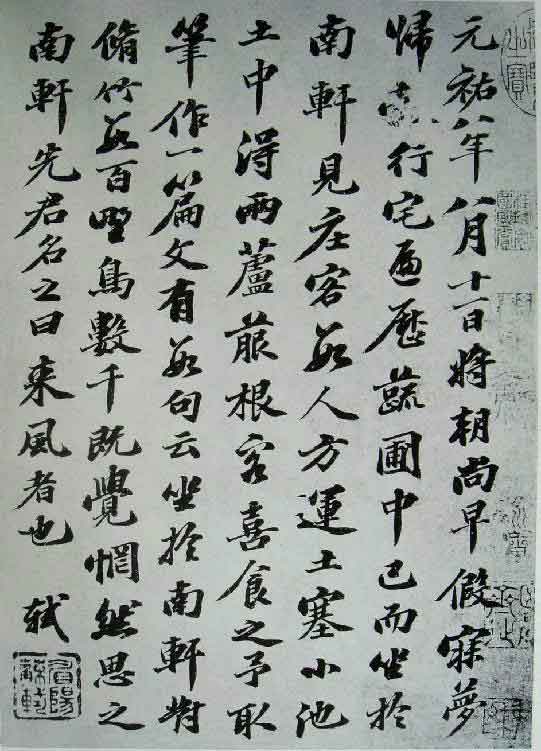 元祐八年八月十一日將朝尚早假寐夢
歸行宅遍歷蔬圃中已而坐於
南軒見庄客數人方運土塞小池
土中得兩蘆菔根客喜食之予取
筆作一篇文有數句云坐於南軒對
脩竹數百野鳥數千既覺惘然思之
南軒先君名之曰來風者也 軾
眉陽蘇軾